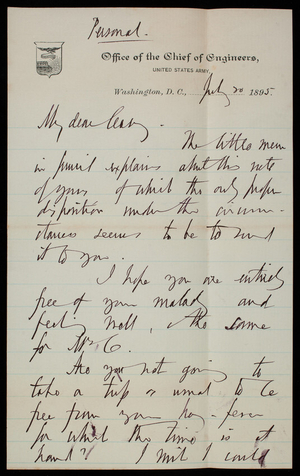 Personal.
Office of the Chief of Engineers,
UNITED STATES ARMY,
Washington, D.C., July 20 1895
My dear Casey.
The little mem
in pencil explains about this note
of yours of which the only proper
disposition under the circum-
stances seems to be to send
it to you.
I hope you are entirely
free of your malady and
feeling well, & the same
for Mrs. C.
Are you not going to
take a trip as usual to be
free from your hay-fever
for which the time is at
hand? I wish I could